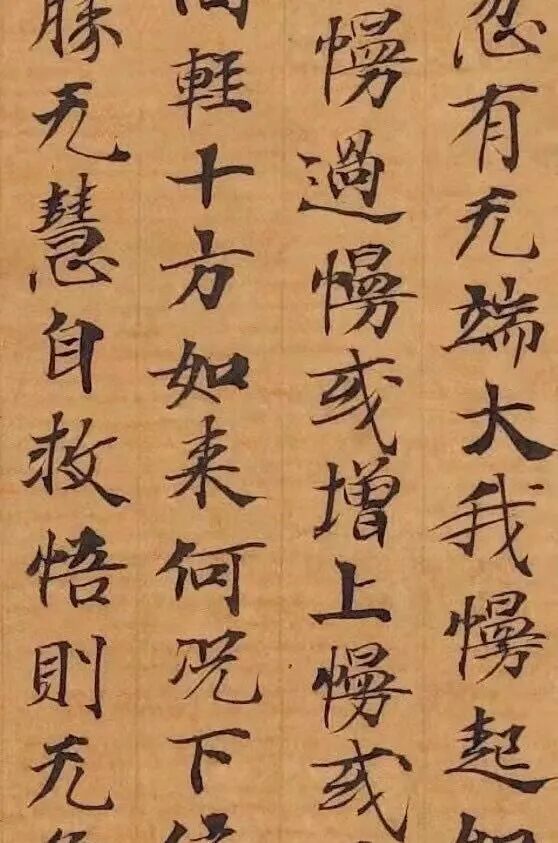 忽有无端大我慢起
慢過慢或增上慢或
尚輕十方如来何况下
勝无慧自救悟則无